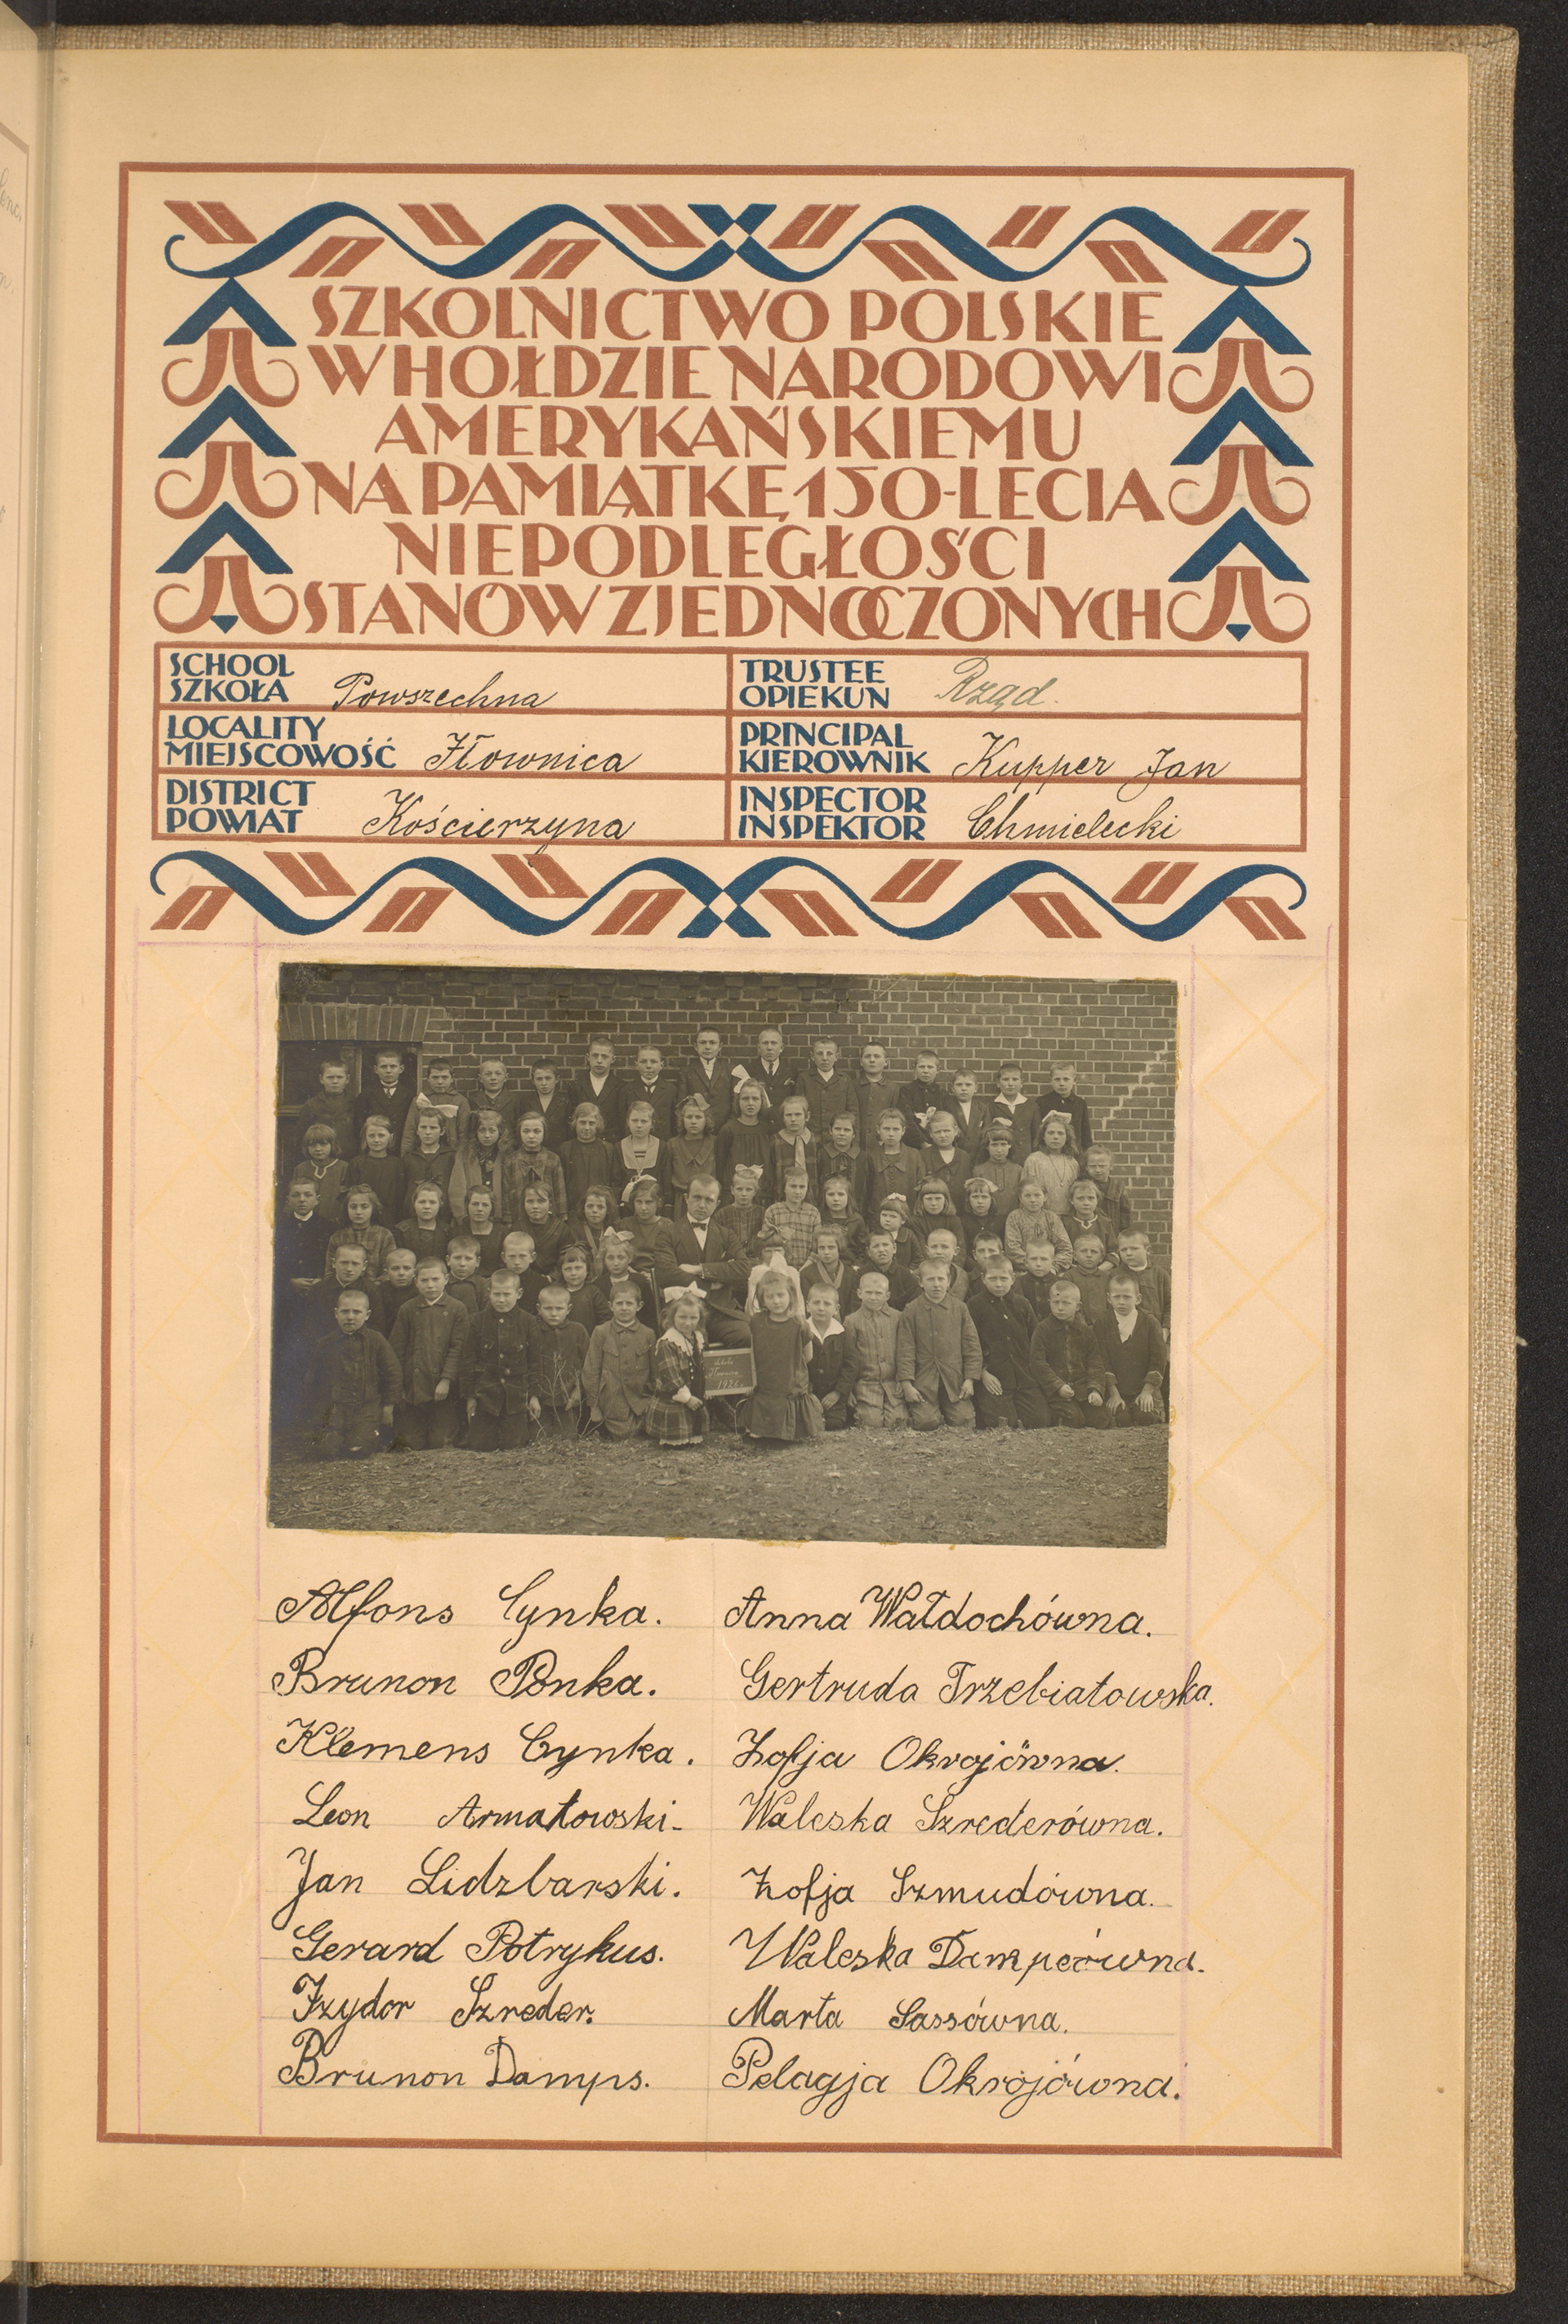 SZKOLNICTWO POLSKIE
W HOŁDZIE NARODOWI
AMERYKAŃSKIEMU
NA PAMIĄTKĘ 150-LECIA
NIEPODLEGŁOŚCI
STANÓW ZJEDNOCZONYCH
SCHOOL
SZKOŁA Powszechna
LOCALITY
MIEJSCOWOŚĆ Iłownica
DISTRICT
POWIAT Kościerzyna
TRUSTEE
OPIEKUN Rząd.
PRINCIPAL
KIEROWNIK Kupper Jan
INSPECTOR
INSPEKTOR Chmielecki
1926
Alfons Cynka.
Brunon Ponka.
Klemens Cynka.
Leon Armatowski-
Jan Lidzbarski.
Gerard Potrykus.
Izydor Szreder.
Brunon Damps.
Anna Wałdochówna.
Gertruda Trzebiatowska.
Zofja Okrojówna.
Waleska Szrederówna.
Zofja Szmudówna.
Waleska
Marta Sassówna.
Pelagja Okrojówna.